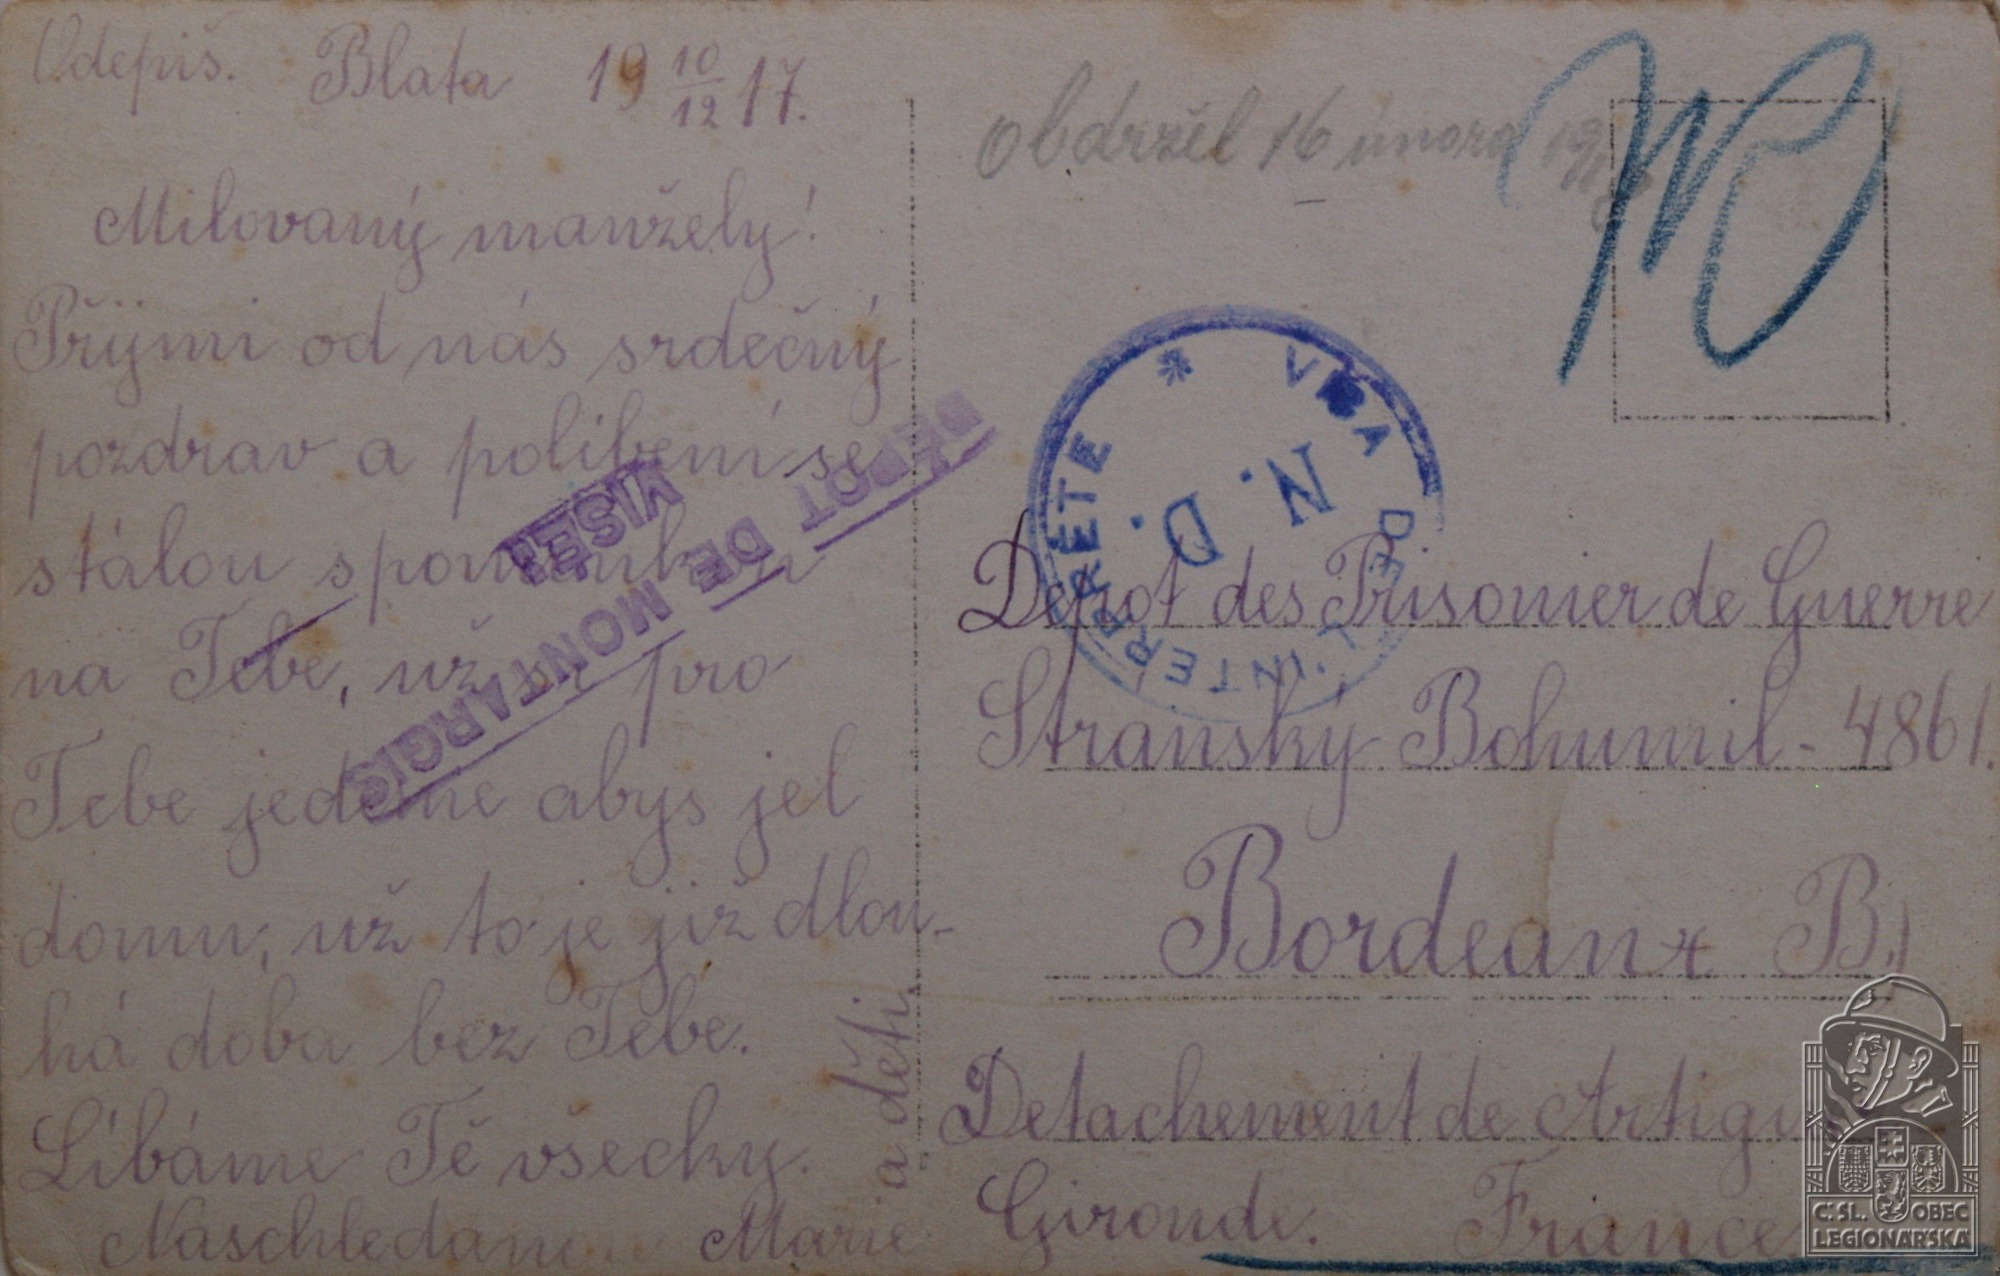 Odepiš. Blata 19 10/12 17.
Milovaný manžely!
Přijmi od nás srdečný
pozdrav a políbení se
stálou spomínkou
na Tebe, už pro
Tebe jedeme abys jel
domu, už to je již dlou-
há doba bez Tebe.
Líbáme Tě všecky.
Naschledanou Marie
a děti.
DÉPÔT DE MONTARGIS
VISÉ
Obdržel 16 února
VISA DE L'INTERPRÉTE *
N. D.
Dépot des Prisonier de Guerre
Stranský Bohumil - 4861.
Bordeaux B.)
Detachement de
Gironde. France
Č. SL. OBEC
LEGIONÁŘSKÁ